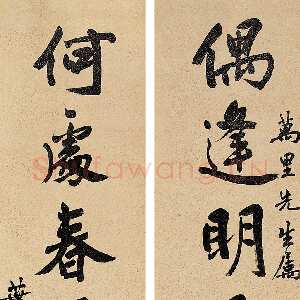 萬里先生属
偶逢明
何處春
Shufawang.CN